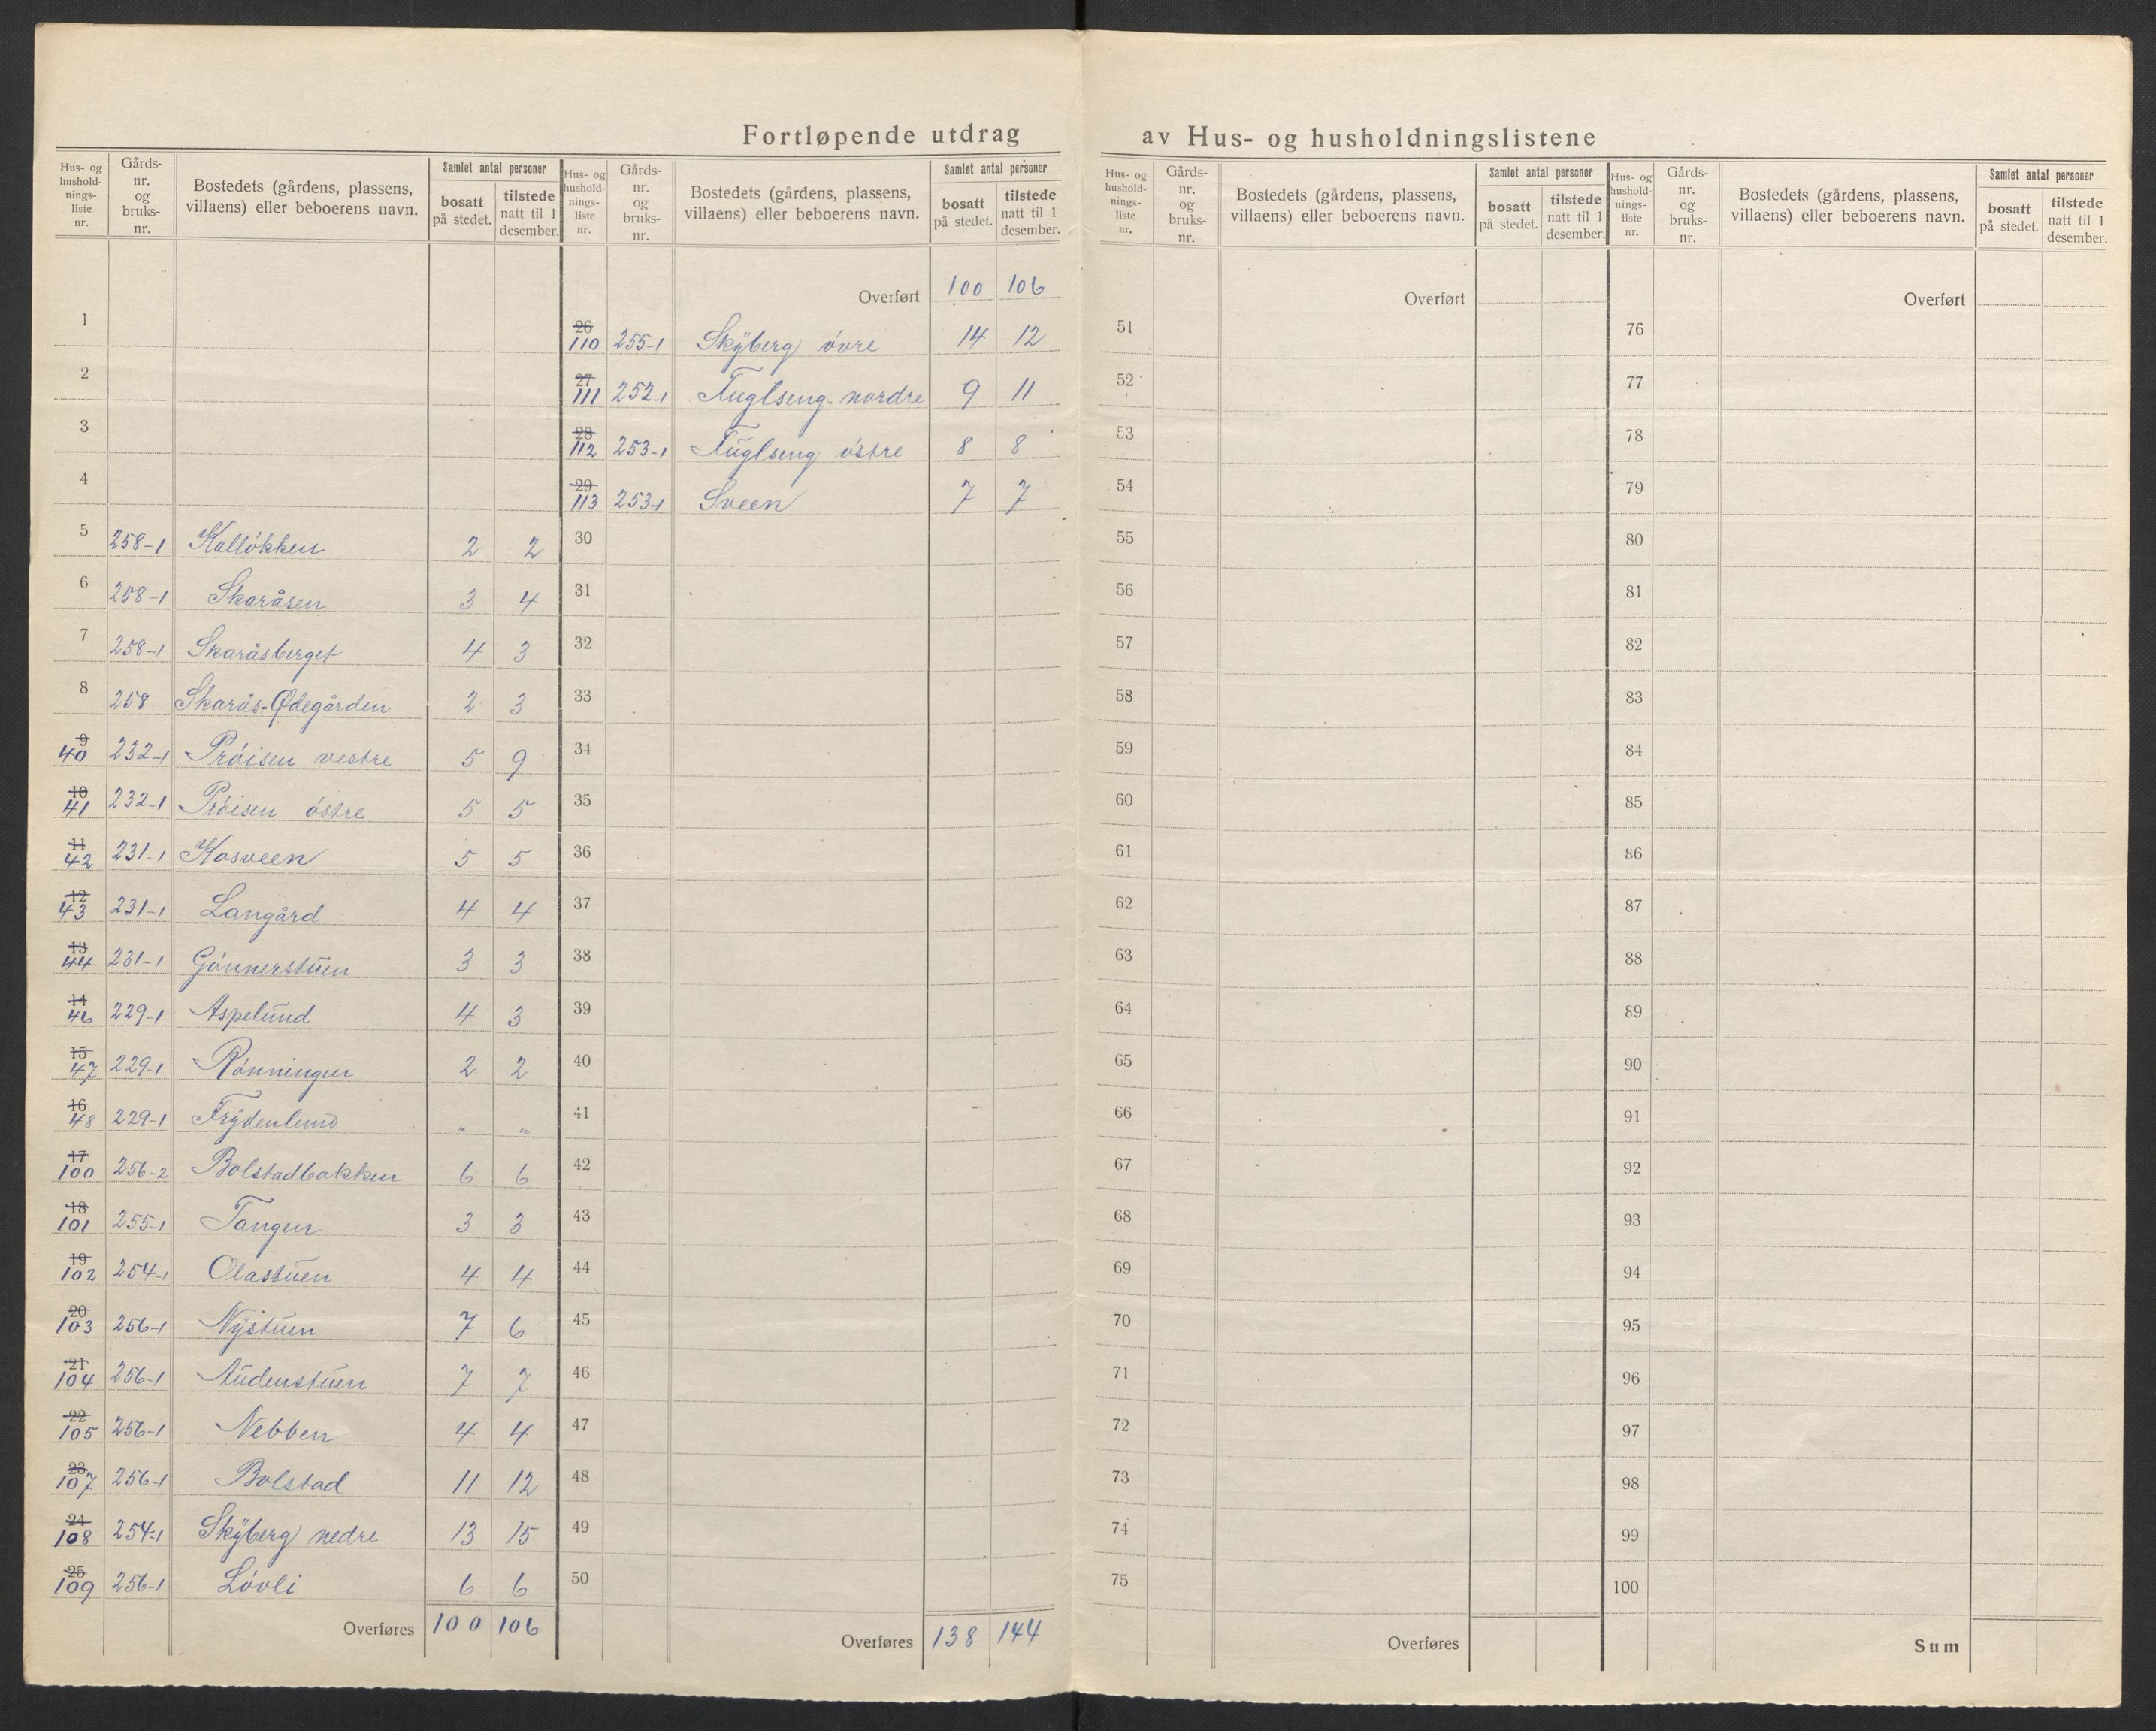 Fortløpende utdrag av Hus- og husholdningslistene
Hus- og husholdnings- liste nr. | Gårds- nr. og bruks- nr. | Bostedets (gårdens, plassens, villaens) eller beboerens navn. | Samlet antal personer | bosatt på stedet. | tilstede natt til 1 desember.
1
2
3
4
5 258-1 Kalløkken 2 2
6 258-1 Skaråsen 3 4
7 258-1 Skaråsberget 4 3
8 258 Skarås-Ødegården 2 3
9 40 232-1 Prøisen vestre 5 9
10 41 232-1 Prøisen østre 5 5
11 42 231-1 Kasveen 5 5
12 43 231-1 Langård 4 4
13 44 231-1 Gønnerstuen 3 3
14 46 229-1 Aspelund 4 3
15 47 229-1 Rønningen 2 2
16 48 229-1 Frydenlund " "
17 100 256-2 Bolstadbakken 6 6
18 101 255-1 Tangen 3 3
19 102 254-1 Olastuen 4 4
20 103 256-1 Nystuen 7 6
21 104 256-1 Audenstuen 7 7
22 105 256-1 Nebben 4 4
23 107 256-1 Bolstad 11 12
24 108 254-1 Skyberg nedre 13 15
25 109 256-1 Løvli 6 6
Overføres 100 106
Hus- og husholdnings- liste nr. | Gårds- nr. og bruks- nr. | Bostedets (gårdens, plassens, villaens) eller beboerens navn. | Samlet antal personer | bosatt på stedet. | tilstede natt til 1 desember.
Overført 100 106
26 110 255-1 Skyberg øvre 14 12
27 111 252-1 Fuglseng nordre 9 11
28 112 253-1 Fuglseng østre 8 8
29 113 253-1 Sveen 7 7
30
31
32
33
34
35
36
37
38
39
40
41
42
43
44
45
46
47
48
49
50
Overføres 138 144
Hus- og husholdnings- liste nr. | Gårds- nr. og bruks- nr. | Bostedets (gårdens, plassens, villaens) eller beboerens navn. | Samlet antal personer | bosatt på stedet. | tilstede natt til 1 desember.
Overført
51
52
53
54
55
56
57
58
59
60
61
62
63
64
65
66
67
68
69
70
71
72
73
74
75
Overføres
Hus- og hushold- nings- liste nr. | Gårds- nr. og bruks- nr. | Bostedets (gårdens, plassens, villaens) eller beboerens navn. | Samlet antal personer | bosatt på stedet. | tilstede natt til 1 desember.
Overført
76
77
78
79
80
81
82
83
84
85
86
87
88
89
90
91
92
93
94
95
96
97
98
99
100
Sum